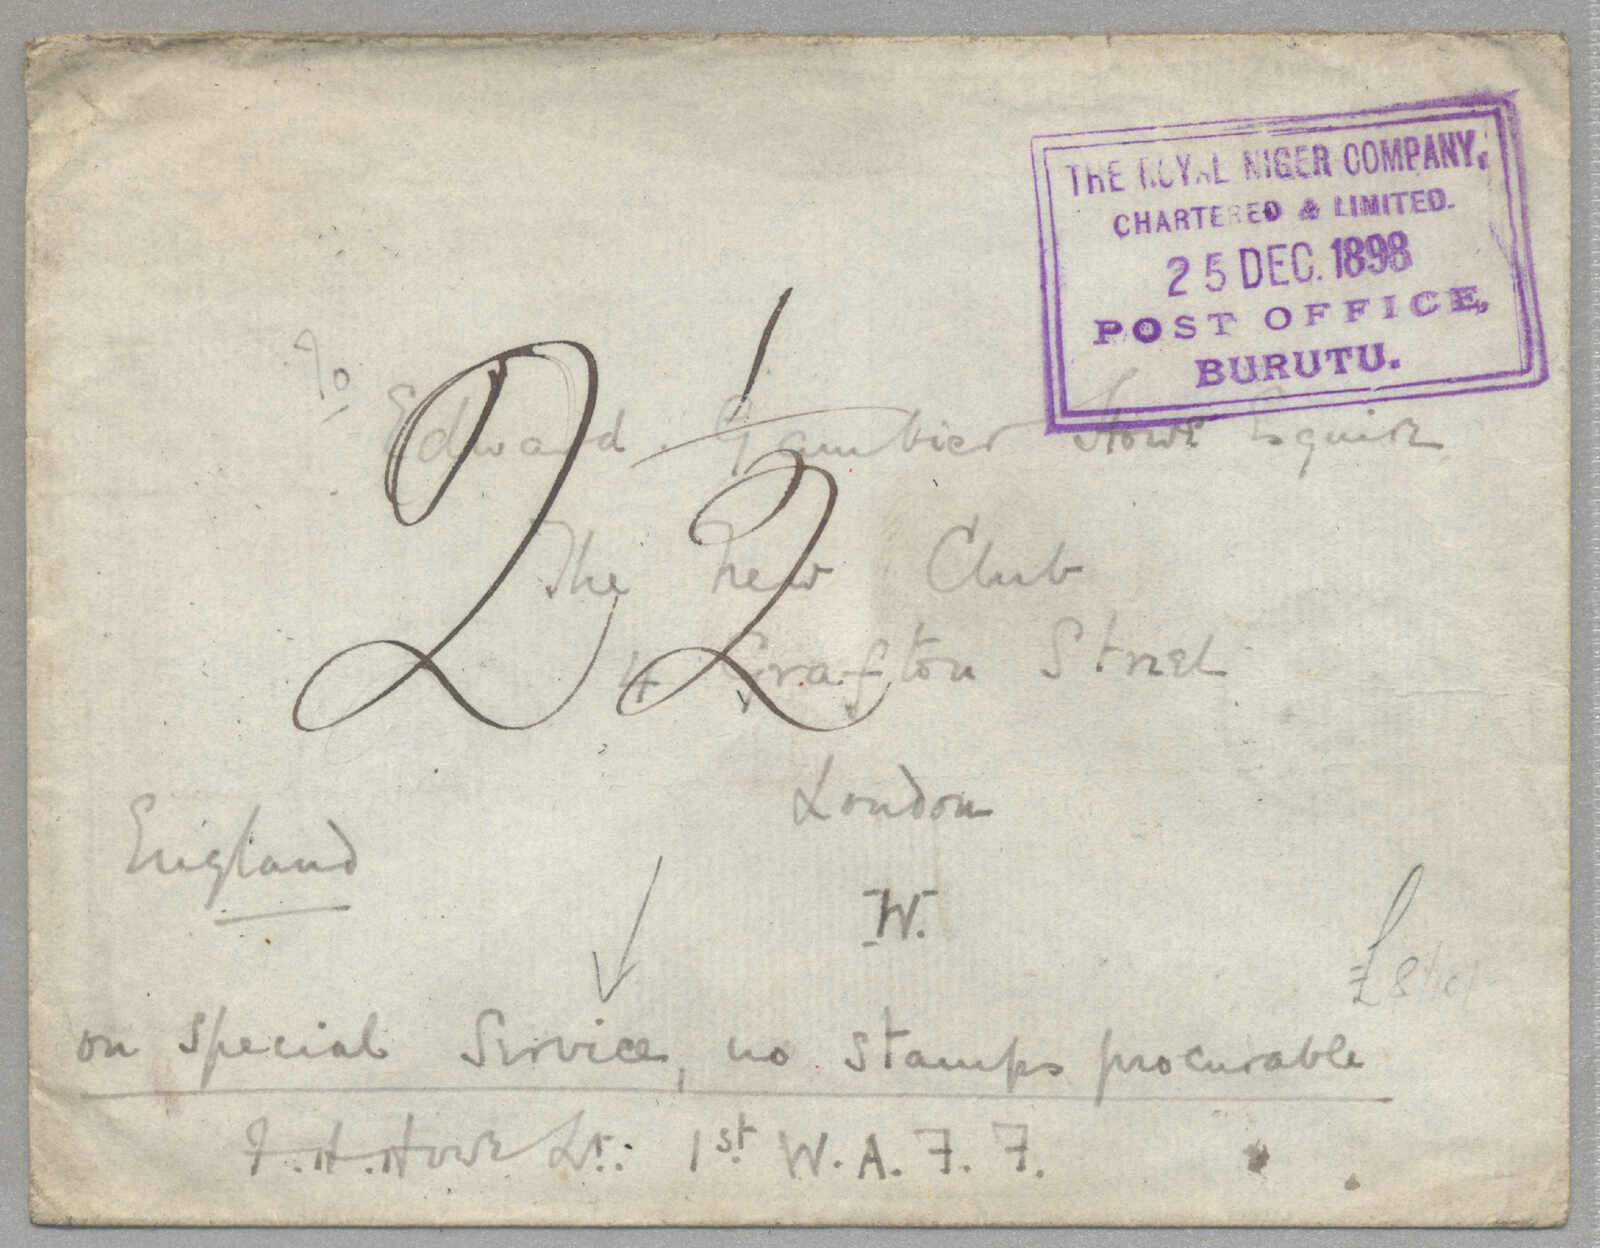 THE ROYAL NIGER COMPANY,
CHARTERED & LIMITED.
25 DEC. 1898
POST OFFICE,
BURUTU.
2 1/2
To
Edward Gambier Howe Esquire
The New Club
4 Grafton Street
London
W.
England
on special Service, no stamps procurable
Howe Lt: 1st W.A.F.F.